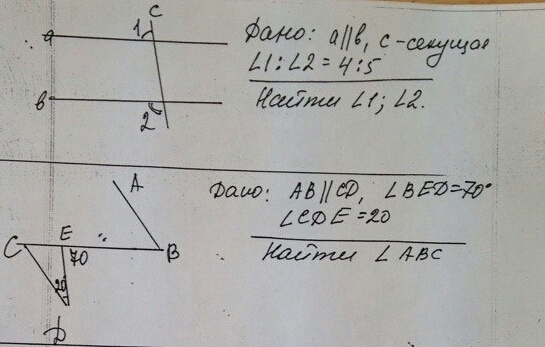 c
a
1
b
2
Дано: a||b, c-секущая
L1:L2=4:5
Найти L1; L2.
A
C
E
70
B
20
D
Дано: AB||CD, LBED=70°
LCDE=20
Найти LABC